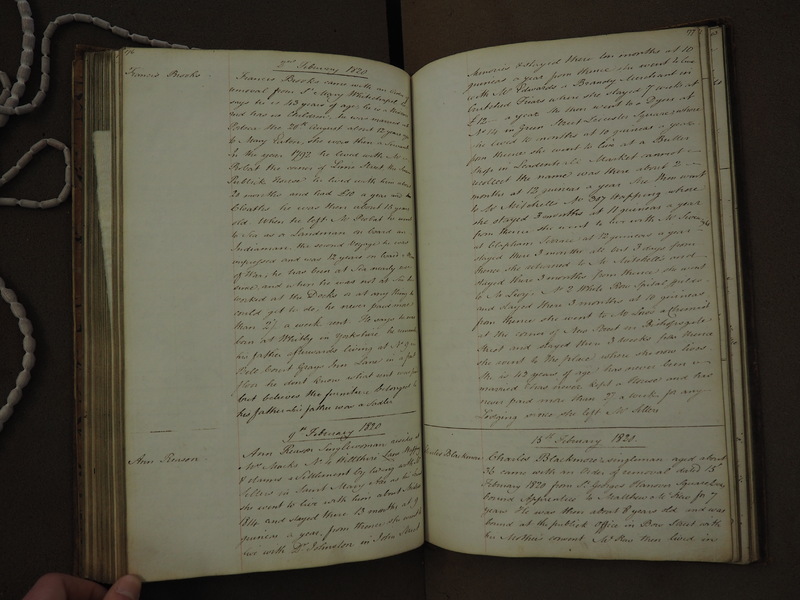 2nd February 1820
Francis Brooks
Francis Brooks came with an order of
removal from St Mary Whitechapel
says he is 43 years of age, he is a
and has no Children, he was married at
the 20th August about 12 years
to Mary Eaton, she was then a servant
in the year 1792 he lived with Mr
Probat the owner of Lime Street the
Publick House he lived with him about
20 months and had £10 a year and
Cloaths he was then about 14 years
old. When he left Mr Probat he went
to Sea as a Landsman on board an
Indiaman the second Voyage he was
impressed and was 12 years on board a Man
of War, he has been at Sea nearly ever
since, and when he was not at Sea he
worked at the Docks or at any thing he
could get to do, he never paid more
than 2/ a week rent He says he was
born at Whitby in Yorkshire he remembers
his father afterwards living at No 9
Court Grays Inn Lane in a first
floor he dont know what rent was paid
but believes the furniture belonged to
his father his father was a Sadler
9th February 1820
Ann Reason
Ann Reason Singlewoman resides at
Mrs Marks No 4 Lane Wapping
& claims a Settlement by living with Mr
Sellers in Saint Mary Axe as
she went to live with him about
1814 and stayed there 13 months at 9
guineas a year, from thence she went to
live with Dr Johnston in John Street
177
Minories & stayed there ten months at 10
guineas a year from thence she went to live
with Mr Edwards a Brandy Merchant in
Crutched Friars where she stayed 7 weeks at
£12 a year she then went to a Dyers at
No 14 in Green Street Leicester Square where
she lived 10 months at 10 guineas a year
from thence she went to live at a Butter
Shop in Leadenhall Market cannot
recollect the name was there about 2
months at 12 guineas a year She then went
to Mr Mitchells No 307 Wapping where
she stayed 3 months at 11 guineas a year
from thence she went to live with Mr
at Clapham Terrace at 12 guineas a year
stayed there 3 months all but 3 days from
thence she returned to Mr Mitchells and
stayed there 3 months from thence she went
to Mr Levy's No 2 White Row Spital fields
and stayed there 3 months at 10 guineas
from thence she went to Mr Lowe a Chemist
at the corner of New Street in Bishopsgate
Street and stayed there 3 weeks from thence
she went to the place where she now lives
She is 43 years of age has never been
married has never kept a House and has
never paid more than 2/ a week for any
Lodging since she left Mr Sellers
15th February 1820
Charles Blackmore
Charles Blackmore singleman aged about
36 came with an Order of removal dated 15
February 1820 from St Georges Hanover Square
bound Apprentice to Matthew Rew for 7
years He was then about 8 years old and was
bound at the publick Office in Bow Street with
his Mother's consent Mr Rew then lived in